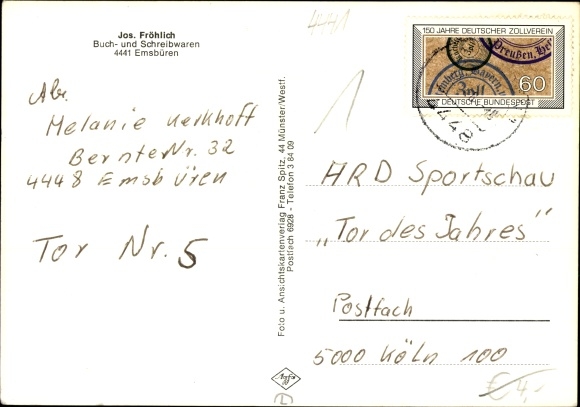 Jos. Fröhlich
Buch- und Schreibwaren
4441 Emsbüren
4441
150 JAHRE DEUTSCHER ZOLLVEREIN
Preußen, Hes
Bayern,
Zoll
60
DEUTSCHE BUNDESPOST
Abs.
Melanie Kerkhoff
BernteNr. 32
4448 Emsbüren
Tor Nr. 5
Foto u. Ansichtskartenverlag Franz Spitz, 44 Münster/Westf.
Postfach 6928 - Telefon 3 84 09
1
ARD Sportschau
„Tor des Jahres"
Postfach
5000 Köln 100
Agfa
€ 4,-